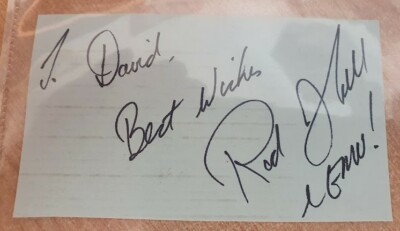 To David,
Best Wishes
Rod Hull
& EMU!